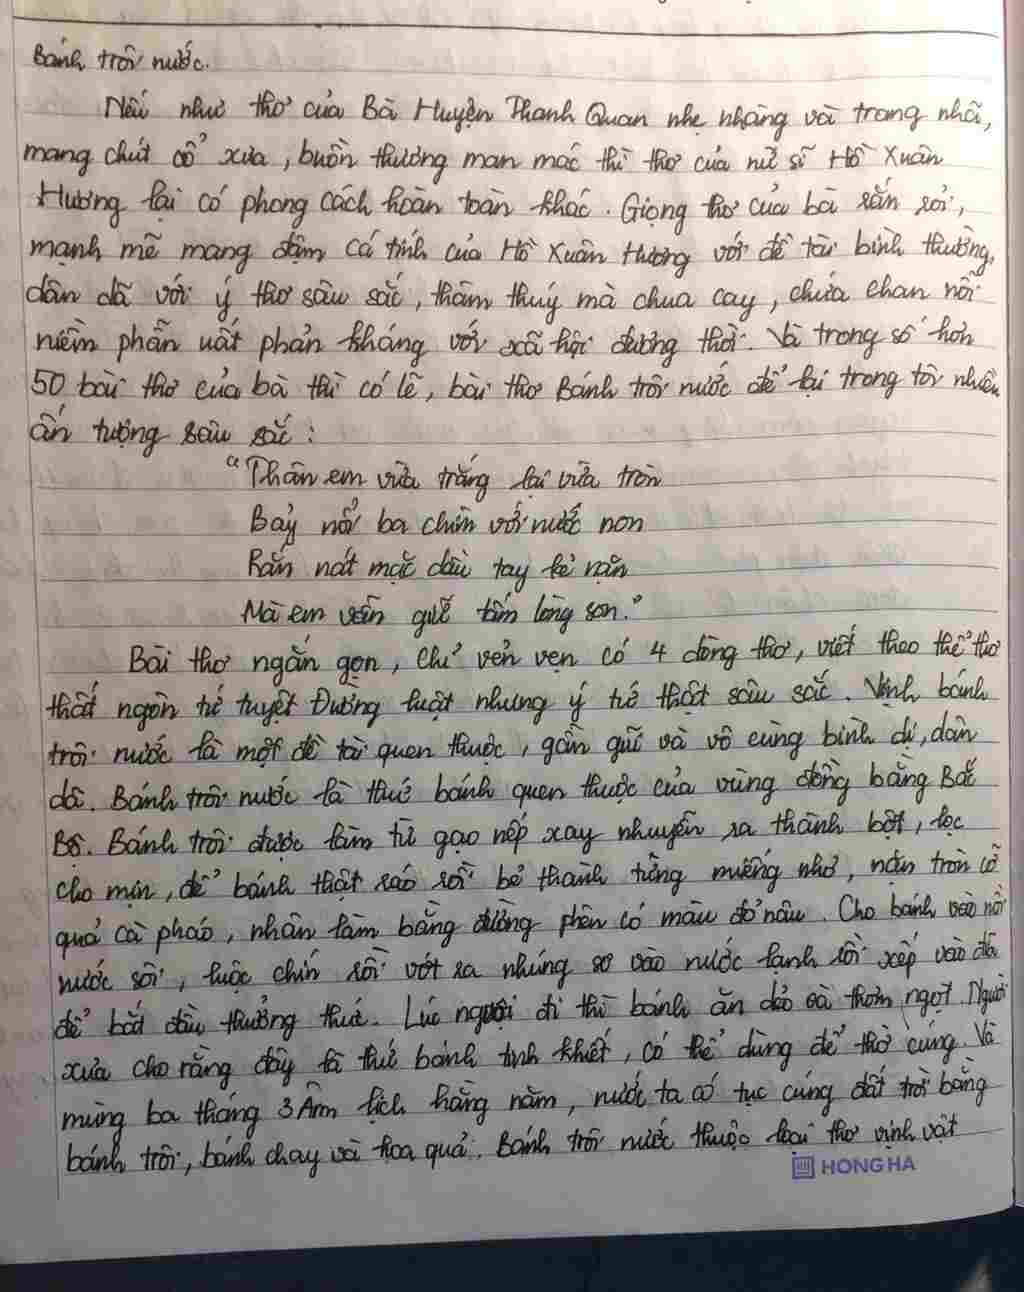 Bánh trôi nước.
Nếu như thơ của Bà Huyện Thanh Quan nhẹ nhàng và trang nhã,
mang chút cổ xưa, buồn thương man mác thì thơ của nữ sĩ Hồ Xuân
Hương lại có phong cách hoàn toàn khác. Giọng thơ của bà sắn sỏi,
mạnh mẽ mang đậm cá tính của Hồ Xuân Hương với đề tài bình thường,
dân dã với ý thơ sâu sắc, thâm thuý mà chua cay, chứa chan nỗi
niềm phẫn uất phản kháng với xã hội đương thời. Và trong số hơn
50 bài thơ của bà thì có lẽ, bài thơ Bánh trôi nước để lại trong tôi nhiều
ấn tượng sâu sắc:
"Thân em vừa trắng lại vừa tròn
Bảy nổi ba chìm với nước non
Rắn nát mặc dầu tay kẻ nặn
Mà em vẫn giữ tấm lòng son."
Bài thơ ngắn gọn, chỉ vẻn vẹn có 4 dòng thơ, viết theo thể thơ
thất ngôn tứ tuyệt Đường luật nhưng ý tứ thật sâu sắc. Vịnh bánh
trôi nước là một đề tài quen thuộc, gần gũi và vô cùng bình dị, dân
dã. Bánh trôi nước là thứ bánh quen thuộc của vùng đồng bằng Bắc
Bộ. Bánh trôi được làm từ gạo nếp xay nhuyễn ra thành bột, lọc
cho mịn, để bánh thật ráo rồi bẻ thành từng miếng nhỏ, nặn tròn cỡ
quả cà pháo, nhân làm bằng đường phên có màu đỏ nâu. Cho bánh vào nồi
nước sôi, luộc chín rồi vớt ra nhúng sơ vào nước lạnh rồi xếp vào đĩa
để bắt đầu thưởng thức. Lúc nguội đi thì bánh ăn dẻo và thơm ngọt. Người
xưa cho rằng đây là thứ bánh tinh khiết, có thể dùng để thờ cúng. Và
mùng ba tháng 3 Âm lịch hằng năm, nước ta có tục cúng đất trời bằng
bánh trôi, bánh chay và hoa quả. Bánh trôi nước thuộc loại thơ vịnh vật
HONG HA